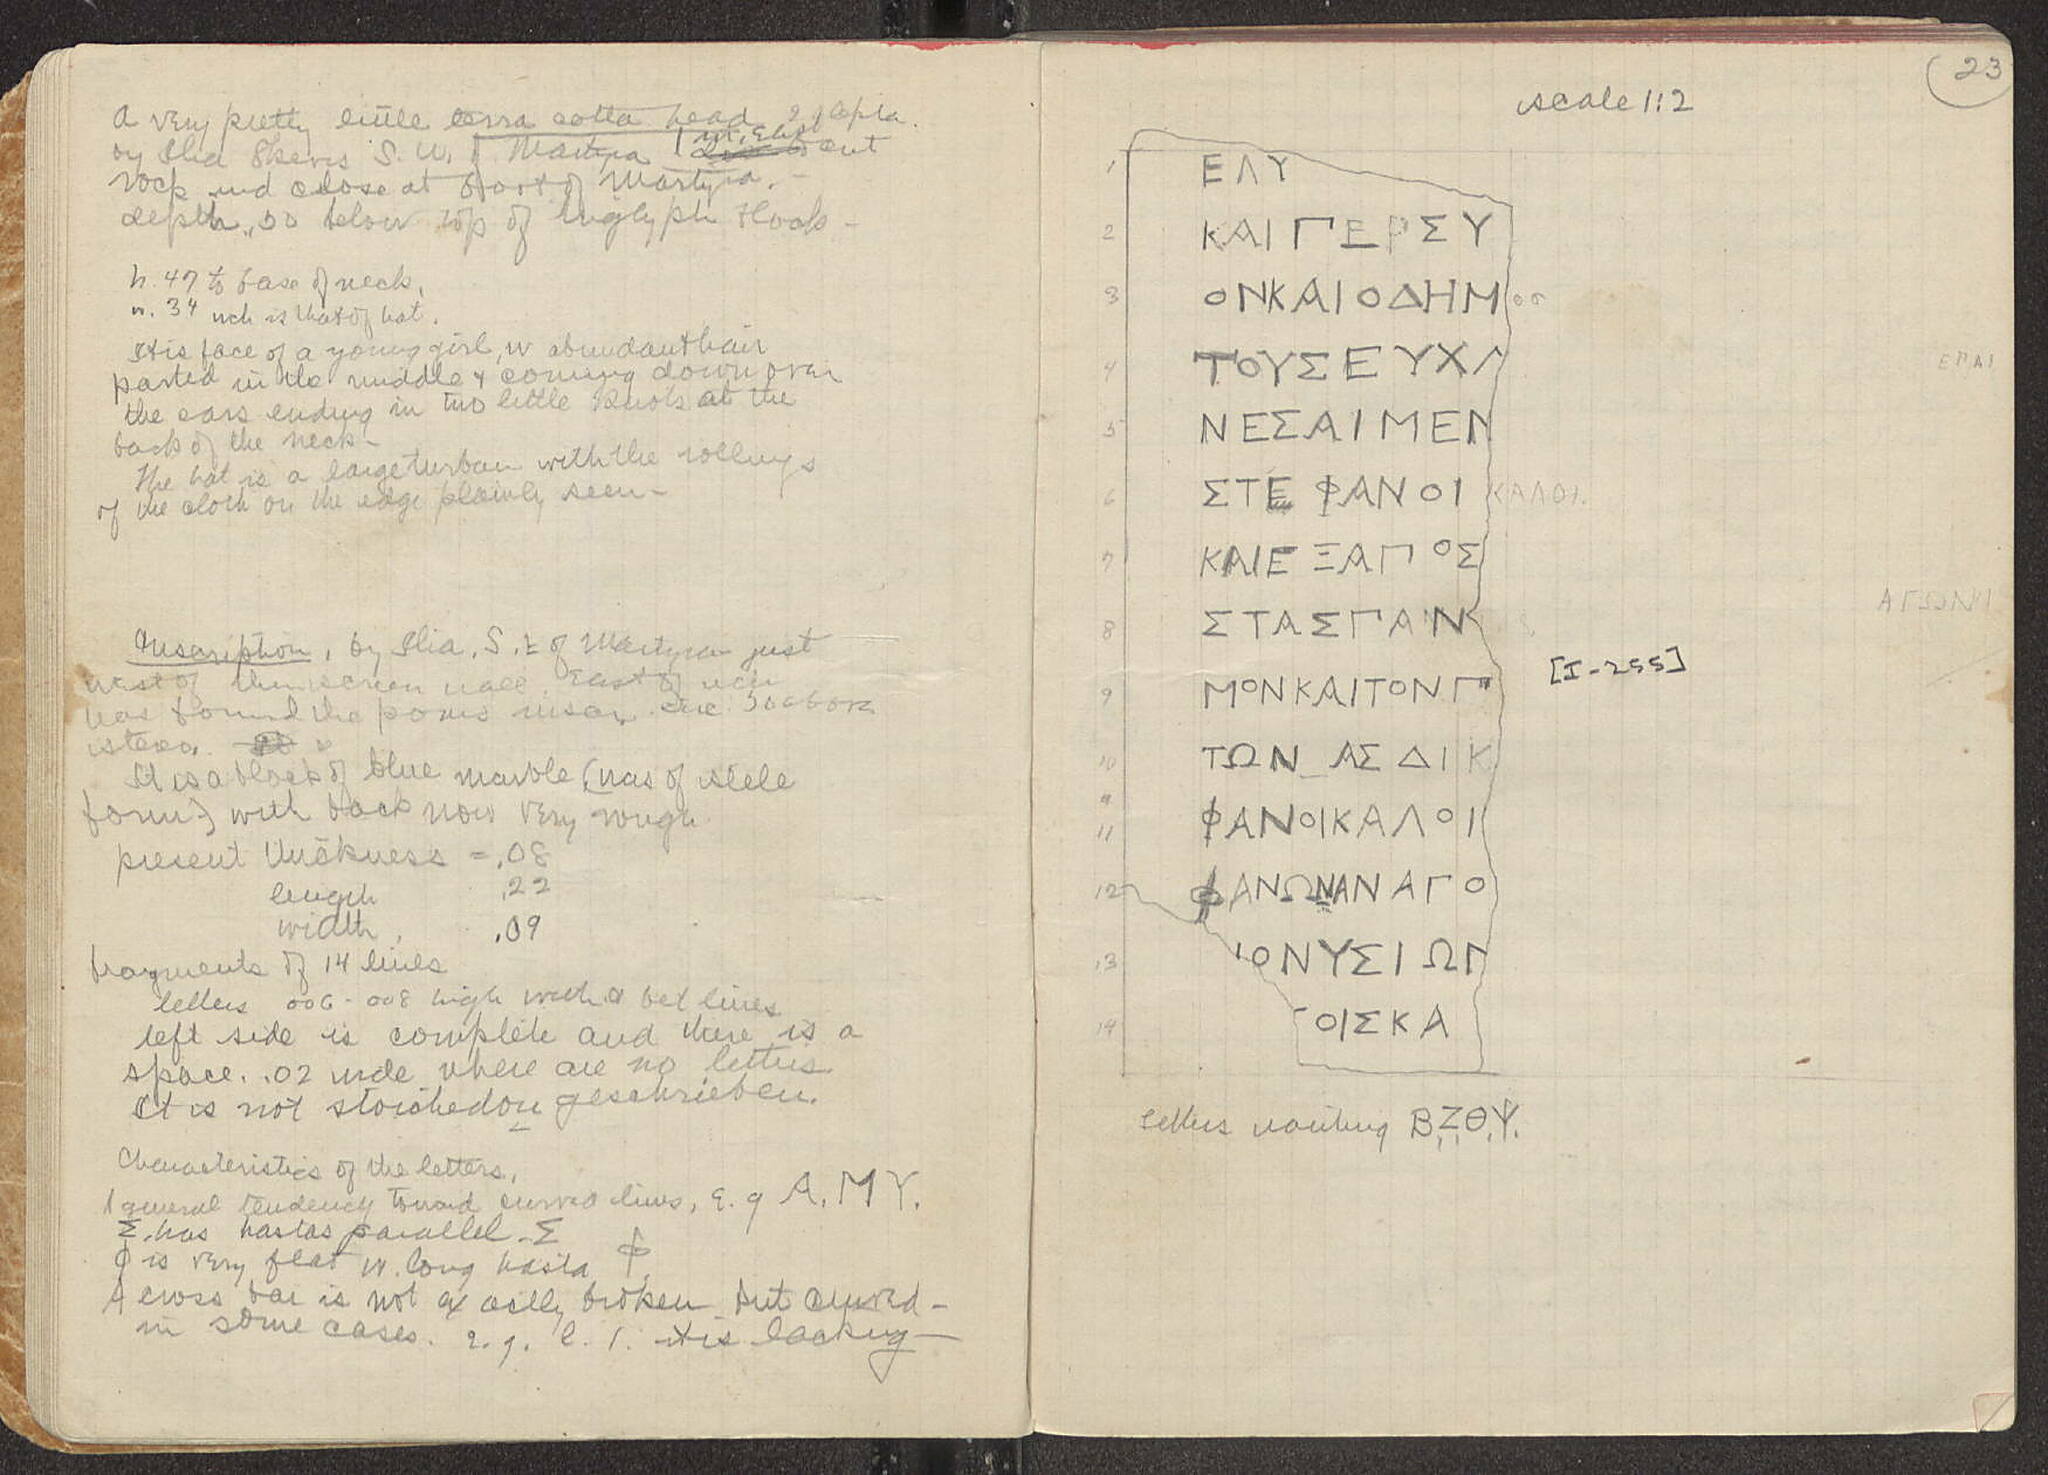 A very pretty little terra cotta head 2 lepta.
by Ilia Skevis S.W. of Martyra 1 mt. East cut
rock and close at foot of Martyra. -
depth .50 below top of triglyph block -
h. 47 to base of neck.
w. 34 wch is that of hat.
It is face of a young girl, w abundant hair
parted in the middle & coming down over
the ears ending in two little knots at the
back of the neck -
The hat is a large turban with the rollings
of the cloth on the edge plainly seen -
Inscription, by Ilia, S.E of Martyra just
west of screen wall East of wch
was found the inscr.
It is a block of blue marble (was of stele
form) with back now very rough
present thickness = .08
length .22
width, .09
fragments of 14 lines
letters 006 - 008 high bet lines
left side is complete and there is a
space. .02 wde where are no letters
It is not stoichedon geschrieben.
Characteristics of the letters,
general tendency toward curved lines, e.g A, M Y.
Σ. has hastas parallel - Σ
Φ is very flat w. long hasta Φ.
A cross bar is not exactly broken but curved -
in some cases. e.g. l. 1. it is lacking -
23
scale 1:2
1 ΕΛΥ
2 ΚΑΙ ΓΕΡΣΥ
3 ΟΝΚΑΙΟΔΗΜ οσ
4 ΤΟΥΣΕΥΧΛ ΕΠΑΙ
5 ΝΕΣΑΙΜΕΝ
6 ΣΤΕΦΑΝΟΙ ΚΑΛΟΙ.
7 ΚΑΙΕΞΑΠΟΣ
ΑΓΩΝΙ
8 ΣΤΑΣΓΑΝ
9 ΜΟΝΚΑΙΤΟΝΓ [I-255]
10 ΤΩΝ ΑΣΔΙΚ
11 ΦΑΝΟΙΚΑΛΟΙ
12 ΦΑΝΩΝΑΝΑΓΟ
13 ΙΟΝΥΣΙΩΓ
14 ΟΙΣΚΑ
letters wanting Β,Ζ,Θ,Ψ.